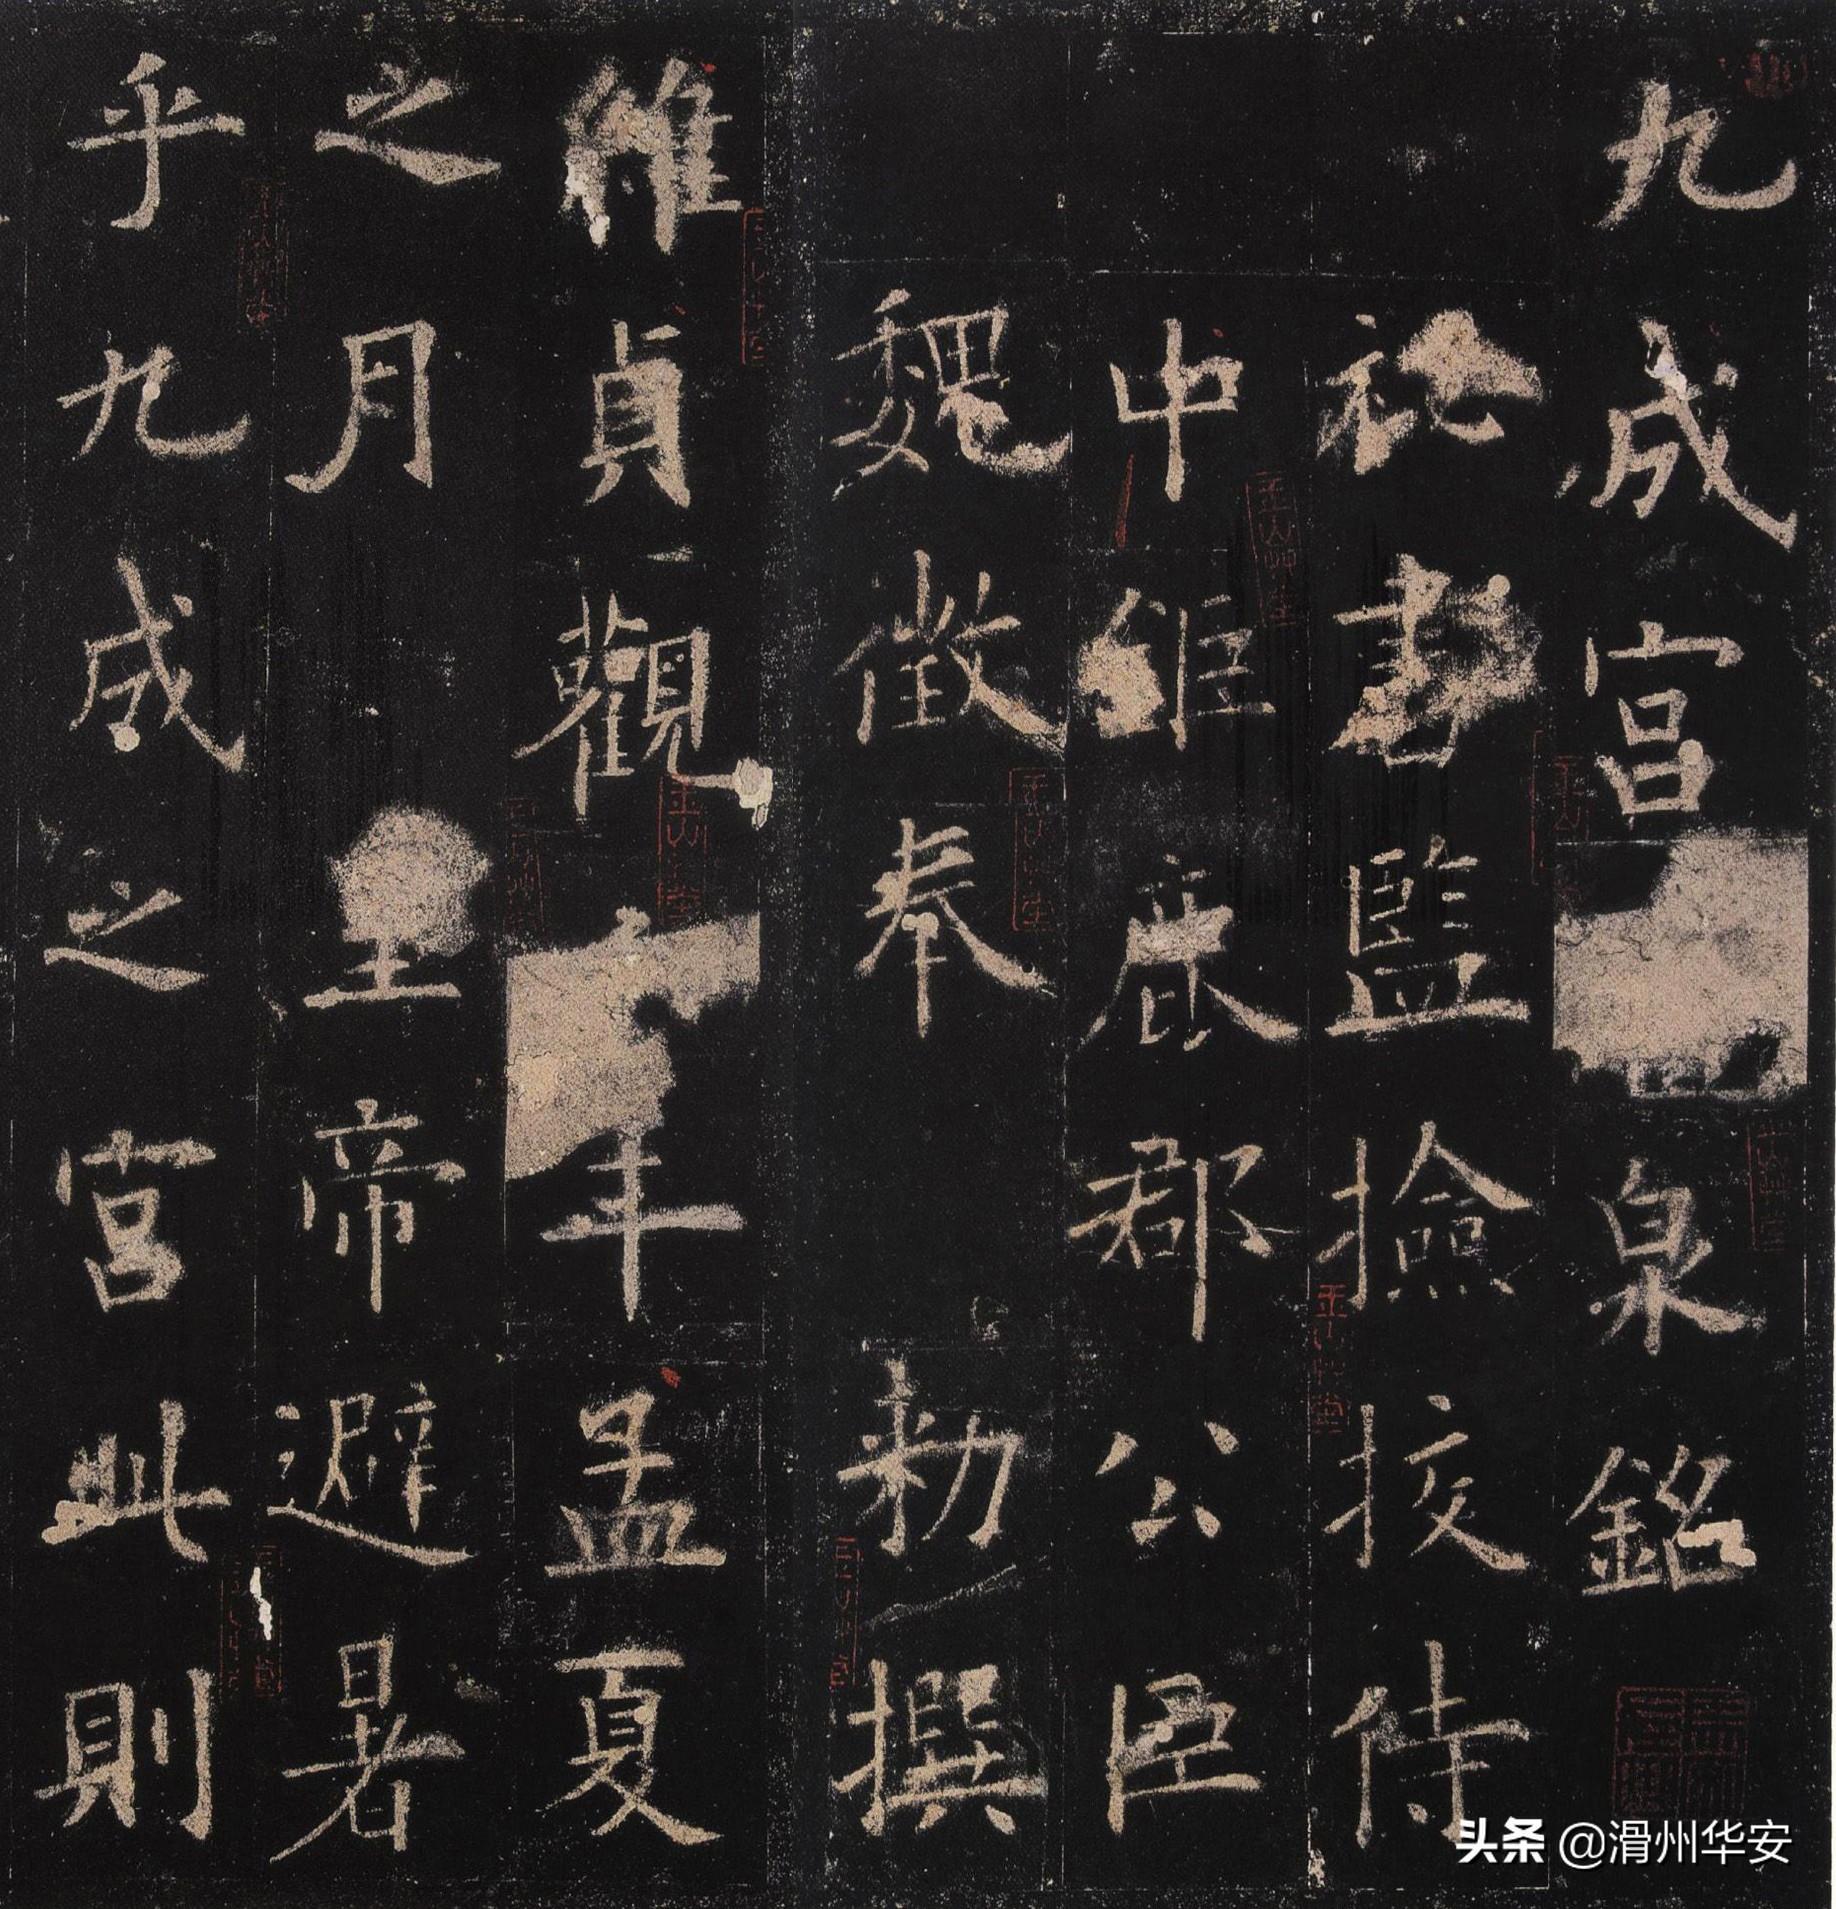 九成宮泉銘
祕書監撿挍侍
中鉅鹿郡公臣
魏徵奉勅撰
維貞觀年孟夏
之月皇帝避暑
乎九成之宮此則
头条 @滑州华安